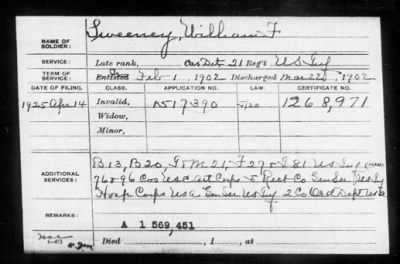 NAME OF SOLDIER: Sweeney, William F
SERVICE: Late rank, Cas Det 21 Reg't U.S. Inf
TERM OF SERVICE: Enlisted Feb 1, 1902 Discharged Mar 22, 1902
DATE OF FILING. CLASS. APPLICATION NO. LAW. CERTIFICATE NO.
1925 Apr. 14 Invalid, 1517390 1268,971
Widow,
Minor,
B 13, B 20, M 21, F 27 I 81 U.S. Inf
ADDITIONAL SERVICES: 76 96 Cos U.S.C. Art Corps Rect Co
Hosp Corps USA U.S. Inf, 2 Co Ord Dept USA
REMARKS: A 1 569,451
Died , 1 , at